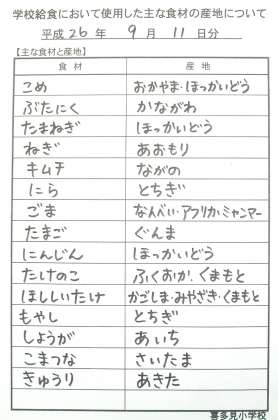 学校給食において使用した主な食材の産地について
平成 26 年 9 月 11 日分
【主な食材と産地】
食材 産地
こめ おかやま・ほっかいどう
ぶたにく かながわ
たまねぎ ほっかいどう
ねぎ あおもり
キムチ ながの
にら とちぎ
ごま なんべい・アフリカ・ミャンマー
たまご ぐんま
にんじん ほっかいどう
たけのこ ふくおか、くまもと
ほししいたけ かごしま・みやざき・くまもと
もやし とちぎ
しょうが あいち
こまつな さいたま
きゅうり あきた
喜多見小学校